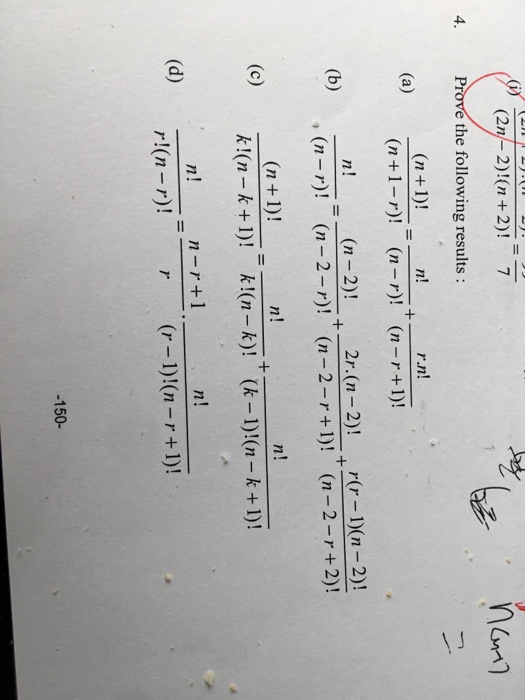 (i) (2n-2)!(n+2)! = 7
4. Prove the following results :
(a) (n+1)!/(n+1-r)! = n!/(n-r)! + r.n!/(n-r+1)!
(b) n!/(n-r)! = (n-2)!/(n-2-r)! + 2r.(n-2)!/(n-2-r+1)! + r(r-1)(n-2)!/(n-2-r+2)!
(c) (n+1)!/k!(n-k+1)! = n!/k!(n-k)! + n!/(k-1)!(n-k+1)!
(d) n!/r!(n-r)! = n-r+1/r · n!/(r-1)!(n-r+1)!
-150-